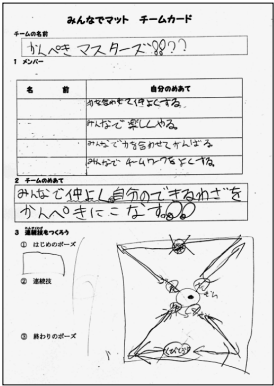 みんなでマット　チームカード
チームの名前
かんぺき マスターズ!!??
1　メンバー
名　前　自分のめあて
力を合わせて仲よくする。
みんなで楽しくやる。
みんなで力を合わせてがんばる
みんなで チームワークをよくする。
2　チームのめあて
みんなで仲よし、自分のできるわざを
かんぺきにこなす
3　連続技をつくろう
①　はじめのポーズ
②　連続技
③　終わりのポーズ